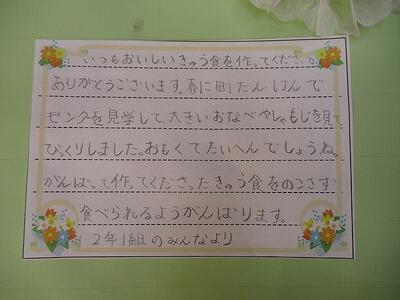 いつもおいしいきゅう食を作ってくださって
ありがとうございます。春に町たんけんで
センタを見学して、大きいおなべやしゃもじを見て
びっくりしました。おもくてたいへんでしょうね。
がんばって作ってくださったきゅう食をのこさず
食べられるようがんばります。
2年1組のみんなより